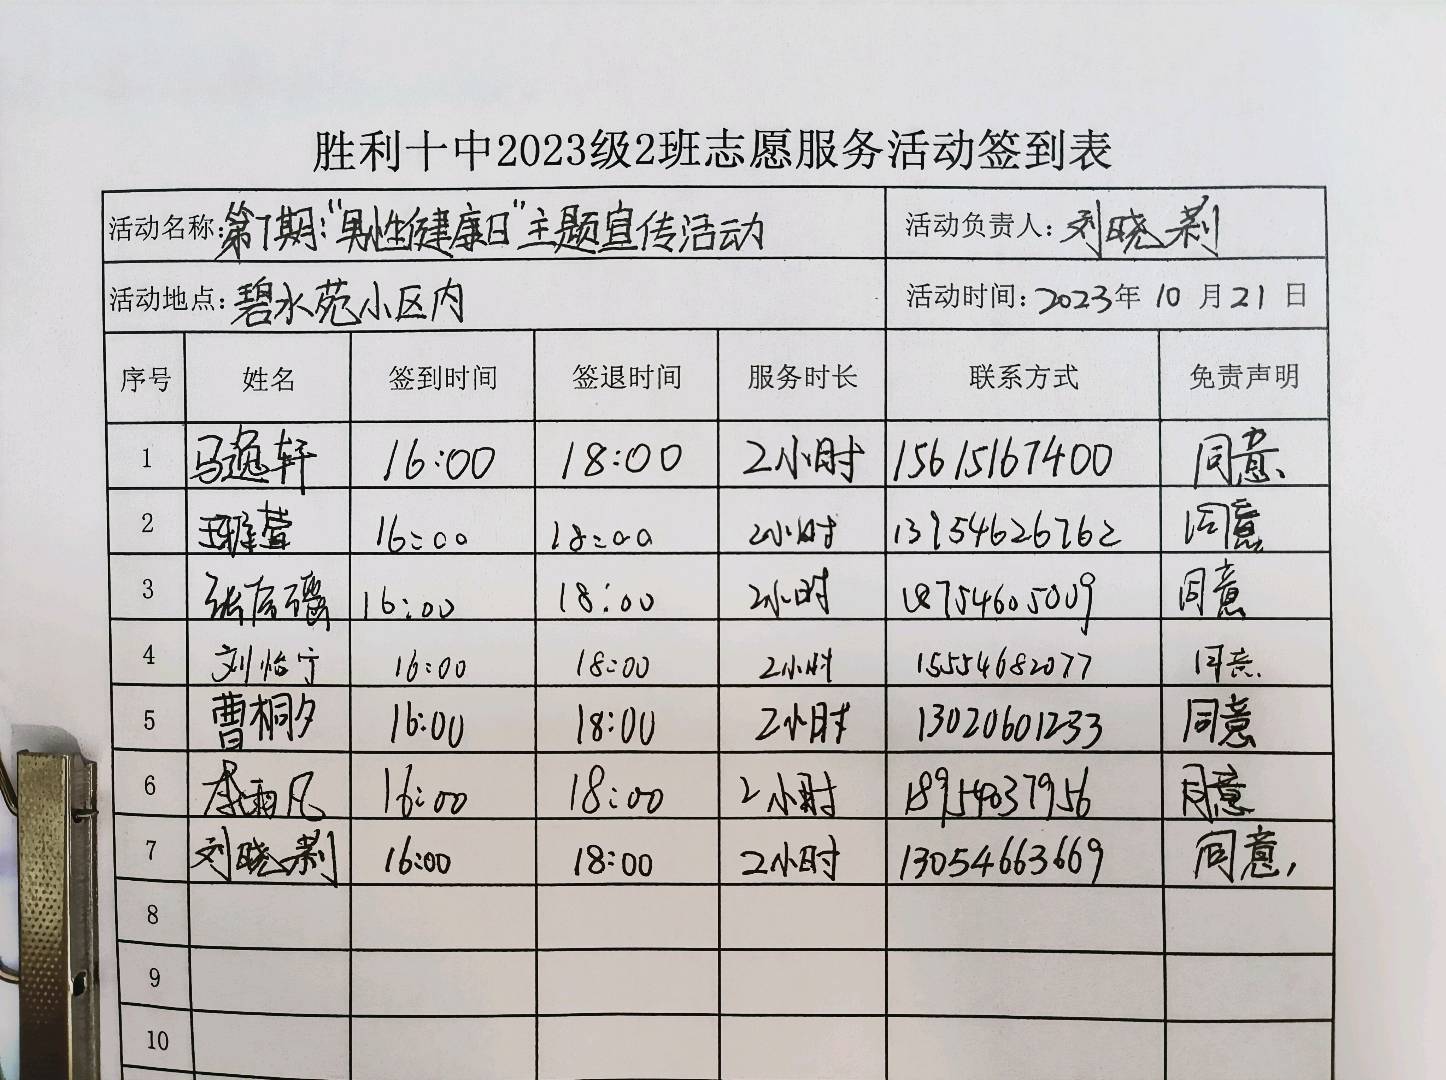 胜利十中2023级2班志愿服务活动签到表
活动名称:第7期:"男性健康日"主题宣传活动 活动负责人:刘晓莉
活动地点:碧水苑小区内 活动时间:2023年 10 月 21 日
序号 姓名 签到时间 签退时间 服务时长 联系方式 免责声明
1 马逸轩 16:00 18:00 2小时 15615167400 同意、
2 16:00 18:00 2小时 13954626762 同意
3 16:00 18:00 2小时 18754605009 同意
4 刘怡宁 16:00 18:00 2小时 15554682077 同意
5 曹桐夕 16:00 18:00 2小时 13020601233 同意
6 李雨凡 16:00 18:00 2小时 18954037956 同意
7 刘晓莉 16:00 18:00 2小时 13054663669 同意,
8
9
10